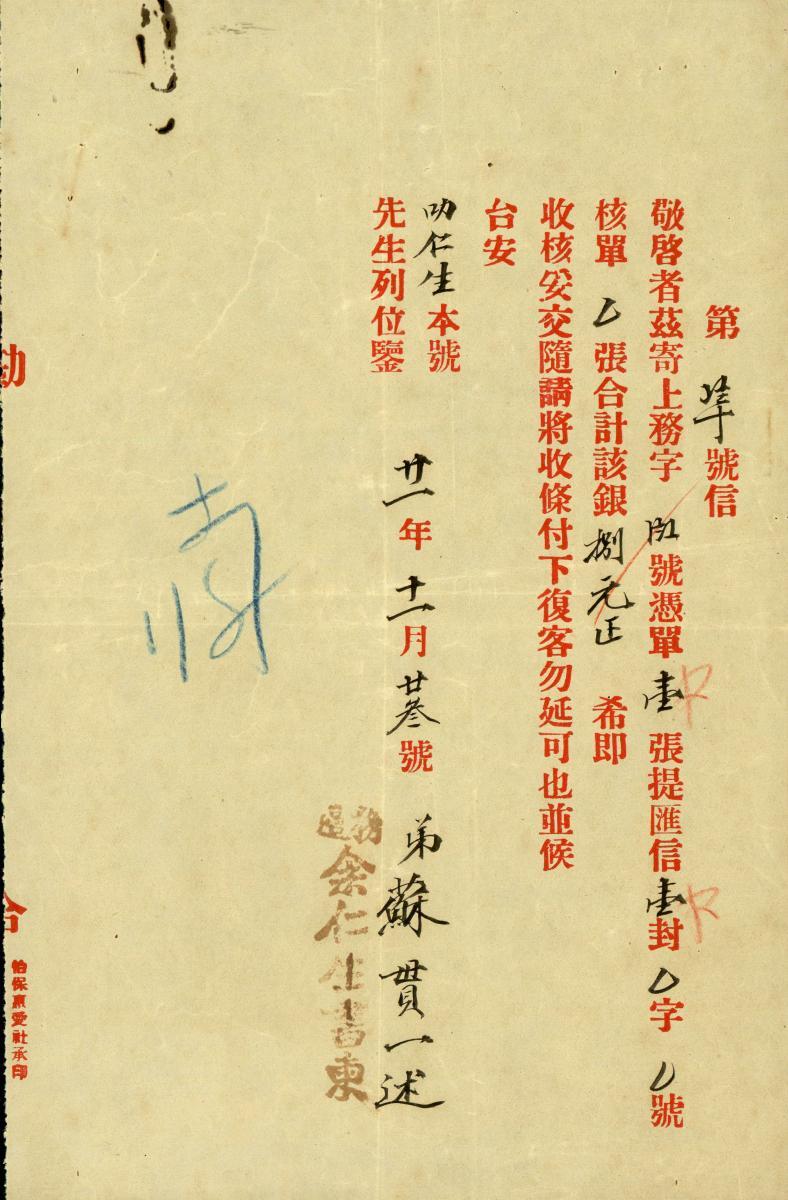 第 號信
敬啓者茲寄上務字 號憑單壹張提匯信壹封 字 號
核單 張合計該銀捌元正 希即
收核妥交隨請將收條付下復客勿延可也並候
台安
叻仁生本號
先生列位鑒
廿一年十一月廿叁號 弟蘇貫一述
務邊余仁生書柬
怡保惠愛社承印